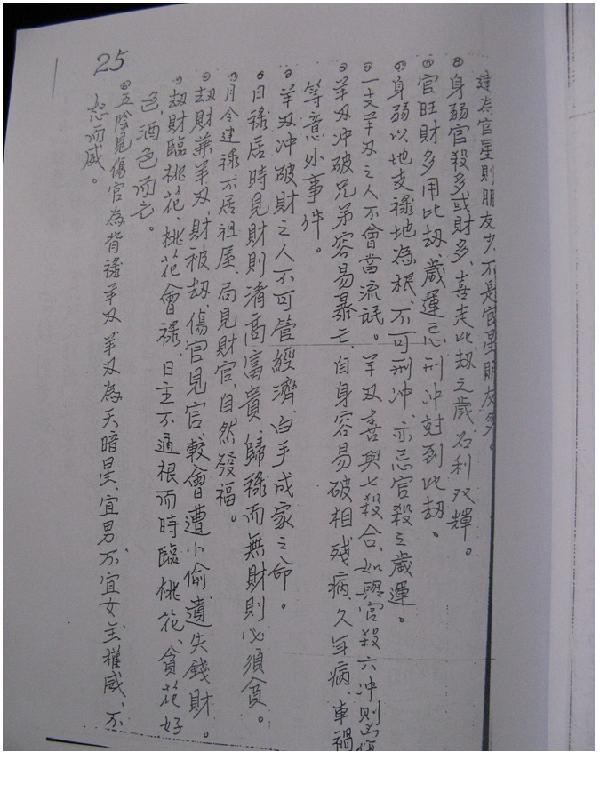 建祿官星則朋友少、不是官星朋友多。
身弱官殺多或財多、喜走比劫之歲、名利双輝。
官旺財多用比劫、歲運忌刑冲尅到比劫、
身弱以地支祿地為根、不可刑冲、亦忌官殺之歲運。
一支羊刃之人不會當流氓。羊刃喜與七殺合、如與官殺六冲則
羊刃冲破兄弟容易暴亡、自身容易破相残病久年病、車禍
等意外事件。
羊刃冲破財之人不可管經濟、白手成家之命。
日祿居時見財則清高富貴、歸祿而無財則必須貪。
月令建祿不居祖屋、而見財官、自然發福。
劫財兼羊刃財被劫傷官見官較會遭小偷、遺失錢財。
劫財臨桃花、桃花會祿、日主不通根而時臨桃花、貪花好
色、酒色而亡。
五陰見傷官為背祿羊刃羊刃為天暗星、宜男不宜女主權威、不
怒而威。
25